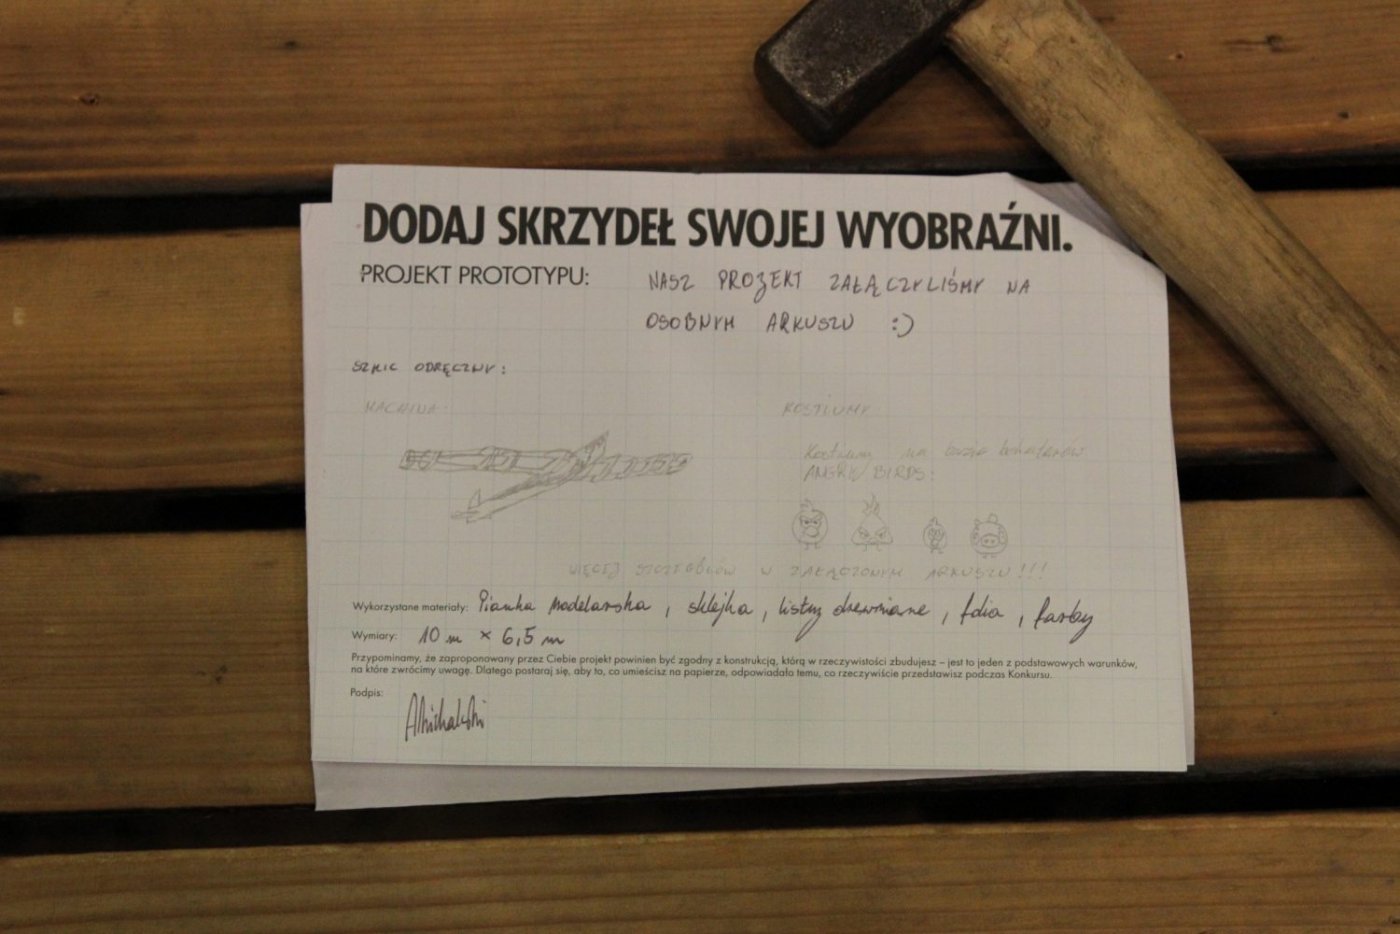 DODAJ SKRZYDEŁ SWOJEJ WYOBRAŹNI.
PROJEKT PROTOTYPU: NASZ PROJEKT ZAŁĄCZYLIŚMY NA
OSOBNYM ARKUSZU :)
SZKIC ODRĘCZNY:
MACHINA: KOSTIUMY
Kostiumy na bazie bohaterów
ANGRY BIRDS:
WIĘCEJ SZCZEGÓŁÓW W ZAŁĄCZONYM ARKUSZU!!!
Wykorzystane materiały: Pianka modelarska, sklejka, listwy drewniane, folia, farby
Wymiary: 10 m × 6,5 m
Przypominamy, że zaproponowany przez Ciebie projekt powinien być zgodny z konstrukcją, którą w rzeczywistości zbudujesz – jest to jeden z podstawowych warunków,
na które zwrócimy uwagę. Dlatego postaraj się, aby to, co umieścisz na papierze, odpowiadało temu, co rzeczywiście przedstawisz podczas Konkursu.
Podpis:
AMichalski